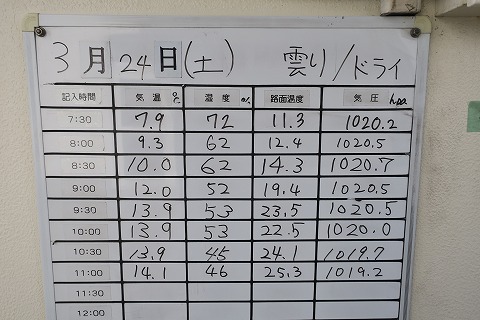 3月24日(土) 雲り/ドライ
記入時間 気温℃ 湿度% 路面温度 気圧hpa
7:30 7.9 72 11.3 1020.2
8:00 9.3 62 12.4 1020.5
8:30 10.0 62 14.3 1020.7
9:00 12.0 52 19.4 1020.5
9:30 13.9 53 23.5 1020.5
10:00 13.9 53 22.5 1020.0
10:30 13.9 45 24.1 1019.7
11:00 14.1 46 25.3 1019.2
11:30
12:00